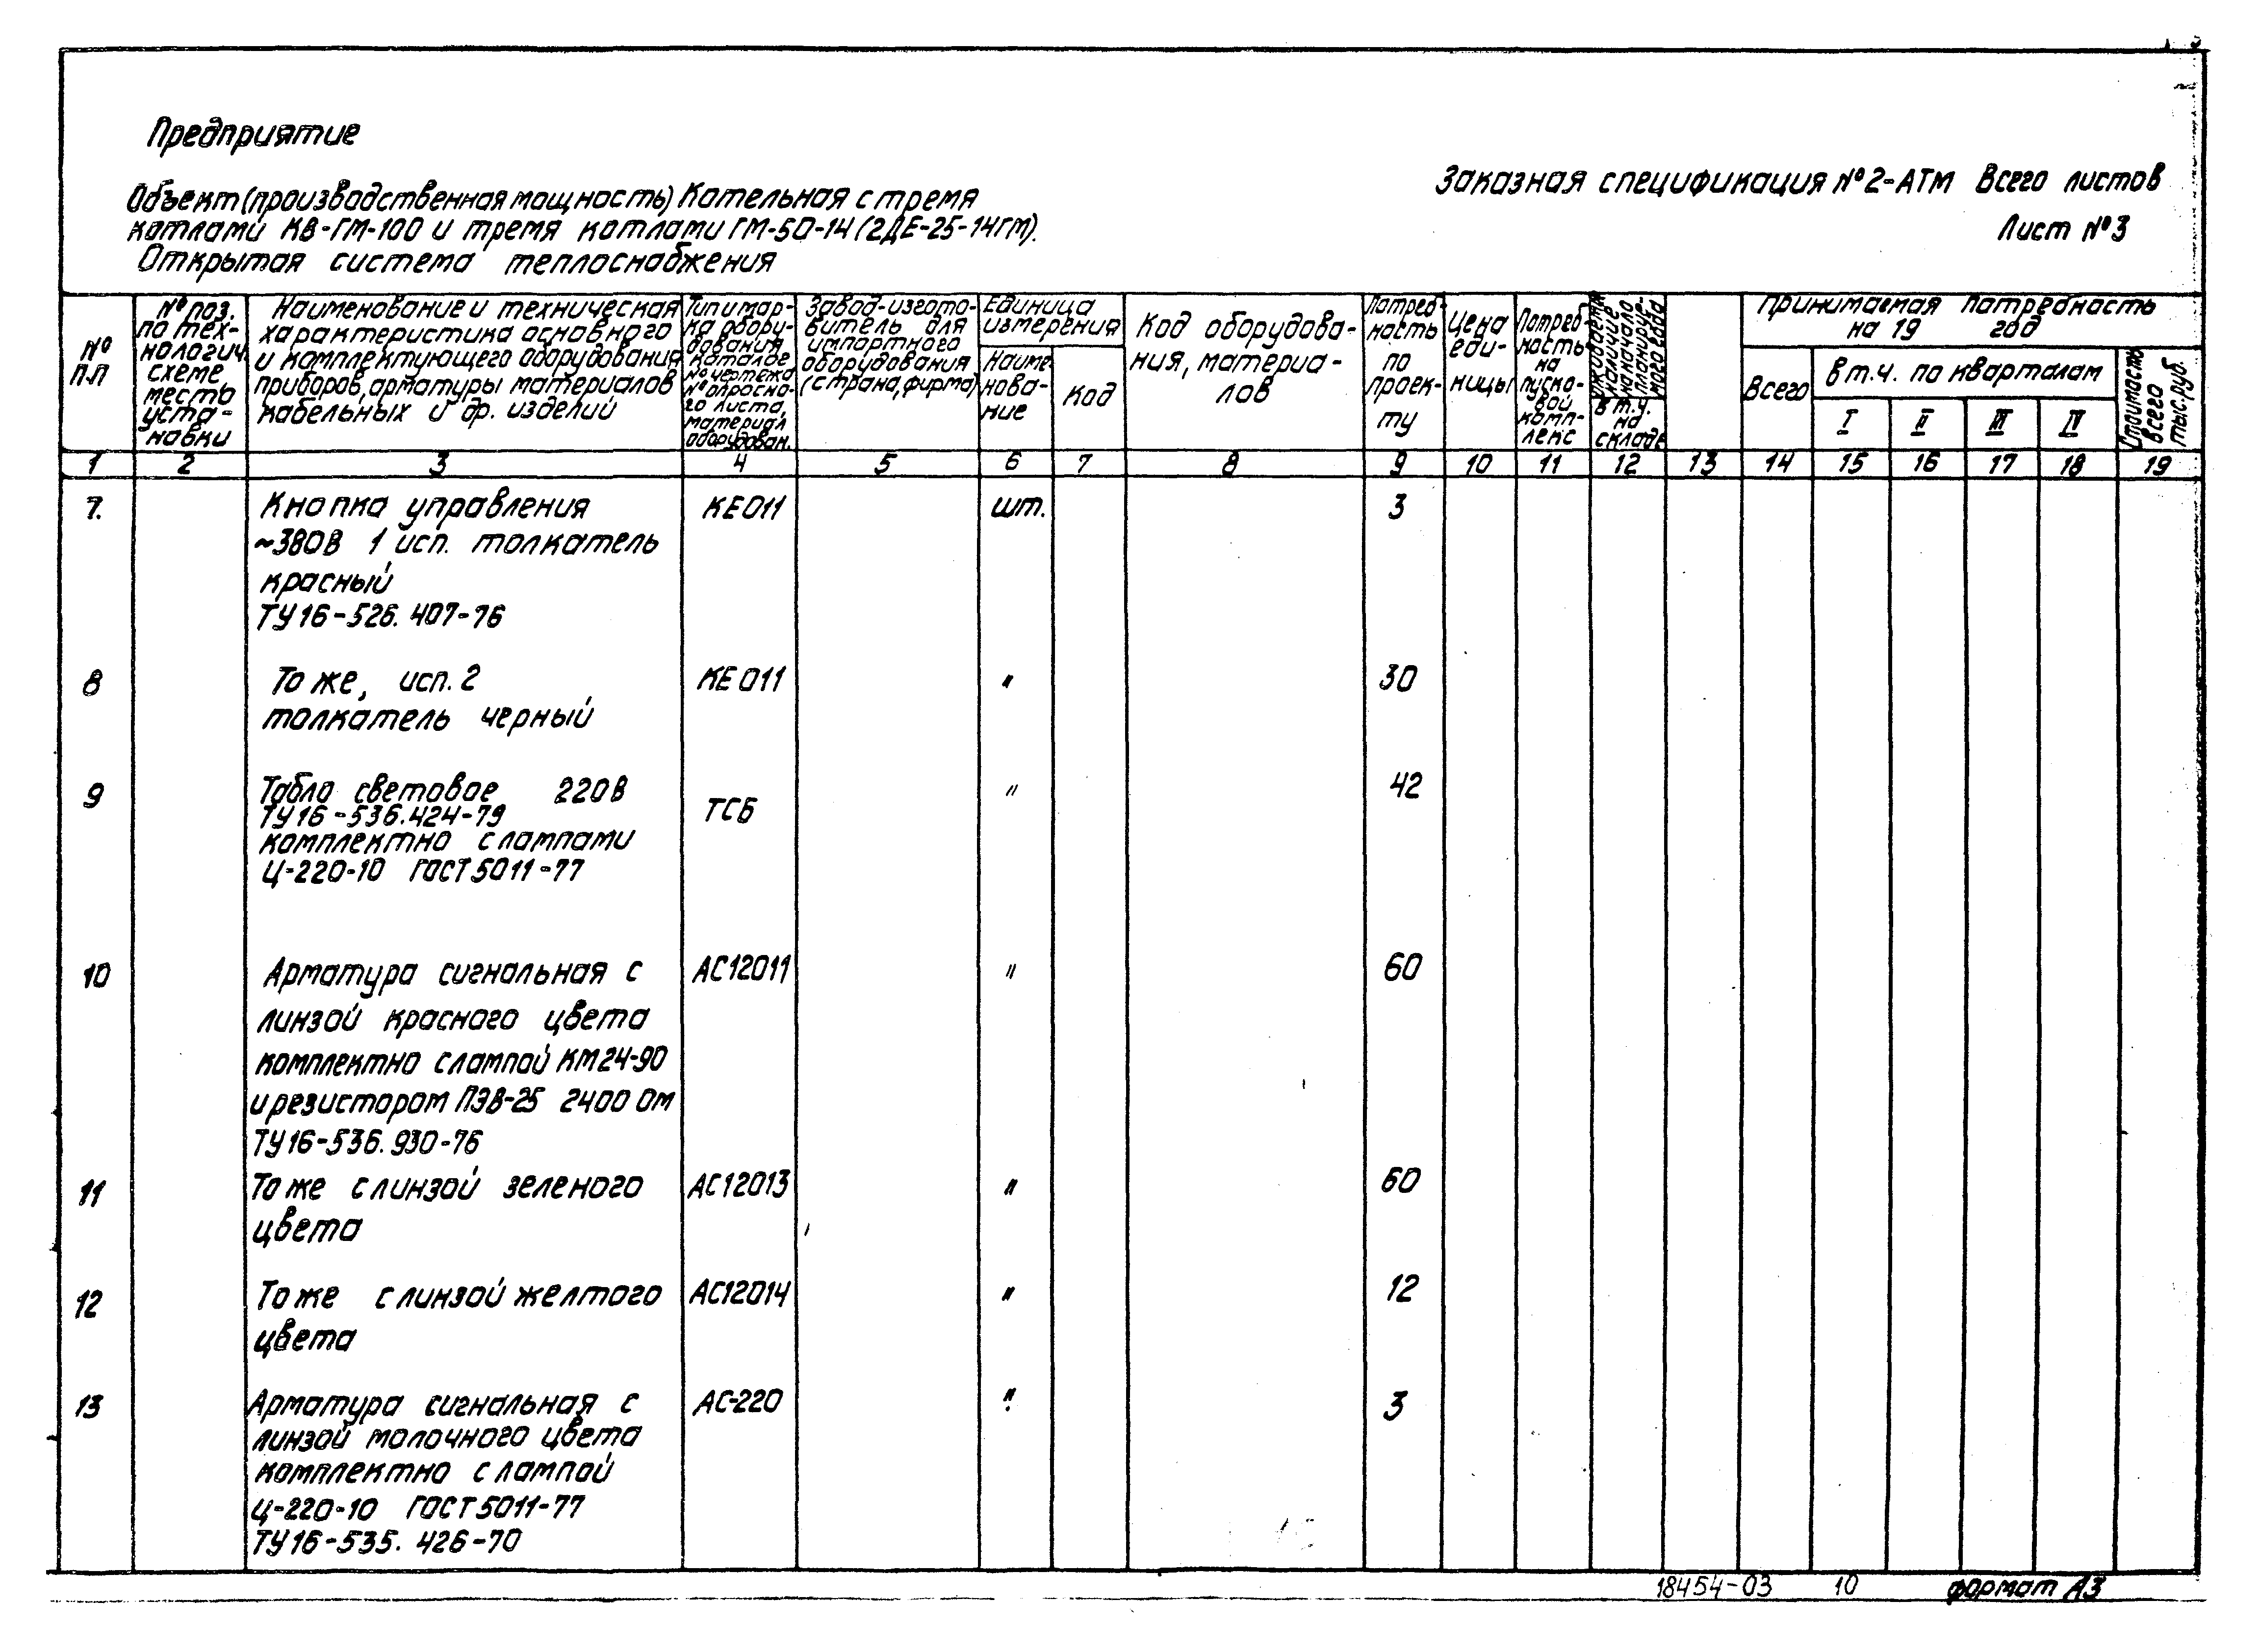 Предприятие
Заказная спецификация №2-АТМ Всего листов
Лист №3
Объект (производственная мощность) Котельная с тремя
котлами КВ-ГМ-100 и тремя котлами ГМ-50-14 (2ДЕ-25-14ГМ).
Открытая система теплоснабжения
№
п.п
№ поз.
по тех-
нологич.
схеме
место
уста-
новки
Наименование и техническая
характеристика основного
и комплектующего оборудования,
приборов, арматуры материалов
кабельных и др. изделий
Тип и мар-
ка обору-
дования
каталог
№ чертежа
№ опросно-
го листа,
материал
оборудован.
Завод-изгото-
витель для
импортного
оборудования
(страна, фирма)
Единица
измерения
Наиме-
нова-
ние
Код
Код оборудова-
ния, материа-
лов
Потреб-
ность
по
проек-
ту
Цена
еди-
ницы
Потреб-
ность
на
пуско-
вой
комп-
лекс
наличие
на начало
планируе-
мого года
в т.ч.
на
складе
Принимаемая потребность
на 19 год
Всего
в т.ч. по кварталам
I II III IV
Стоимость
всего
тыс. руб.
1 2 3 4 5 6 7 8 9 10 11 12 13 14 15 16 17 18 19
7. Кнопка управления КЕ011 шт. 3
~380В 1 исп. толкатель
красный
ТУ16-526.407-76
8 То же, исп. 2 КЕ011 " 30
толкатель черный
9 Табло световое 220В ТСБ " 42
ТУ16-536.424-79
комплектно с лампами
Ц-220-10 ГОСТ 5011-77
10 Арматура сигнальная с АС12011 " 60
линзой красного цвета
комплектно с лампой КМ24-90
и резистором ПЭВ-25 2400 Ом
ТУ16-536.930-76
11 То же с линзой зеленого АС12013 " 60
цвета
12 То же с линзой желтого АС12014 " 12
цвета
13 Арматура сигнальная с АС-220 " 3
линзой молочного цвета
комплектно с лампой
Ц-220-10 ГОСТ 5011-77
ТУ16-535.426-70
18454-03 10 формат А3